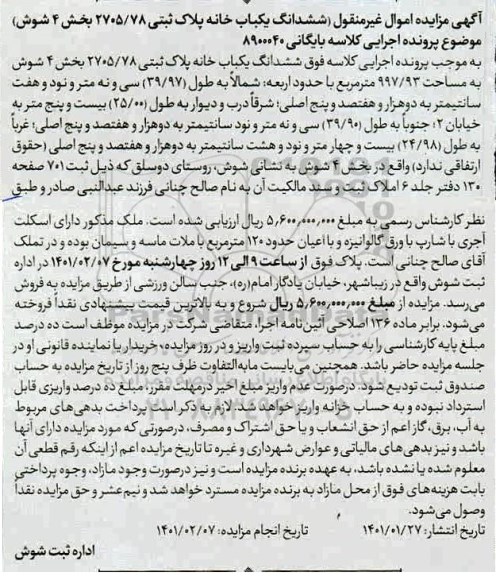 آگهی مزایده اموال غیرمنقول (ششدانگ یکباب خانه پلاک ثبتی ۲۷۰۵/۷۸ بخش ۴ شوش)
موضوع پرونده اجرایی کلاسه بایگانی ۸۹۰۰۰۴۰
به موجب پرونده اجرایی کلاسه فوق ششدانگ یکباب خانه پلاک ثبتی ۲۷۰۵/۷۸ بخش ۴ شوش
به مساحت ۹۹۷/۹۳ مترمربع با حدود اربعه: شمالاً به طول (۳۹/۹۷) سی و نه متر و نود و هفت
سانتیمتر به دوهزار و هفتصد و پنج اصلی؛ شرقاً درب و دیوار به طول (۲۵/۰۰) بیست و پنج متر به
خیابان ۲؛ جنوباً به طول (۳۹/۹۰) سی و نه متر و نود سانتیمتر به دوهزار و هفتصد و پنج اصلی؛ غرباً
به طول (۲۴/۹۸) بیست و چهار متر و نود و هشت سانتیمتر به دوهزار و هفتصد و پنج اصلی (حقوق
ارتفاقی ندارد) واقع در بخش ۴ شوش به نشانی شوش، روستای دوسلق که ذیل ثبت ۷۰۱ صفحه
۱۳۰ دفتر جلد ۶ املاک ثبت و سند مالکیت آن به نام صالح چنانی فرزند عبدالنبی صادر و طبق
نظر کارشناس رسمی به مبلغ ۵٫۶۰۰٫۰۰۰٫۰۰۰ ریال ارزیابی شده است. ملک مذکور دارای اسکلت
آجری با شارپ با ورق گالوانیزه و با اعیان حدود ۱۲۰ مترمربع با ملات ماسه و سیمان بوده و در تملک
آقای صالح چنانی است. پلاک فوق از ساعت ۹ الی ۱۲ روز چهارشنبه مورخ ۱۴۰۱/۰۲/۰۷ در اداره
ثبت شوش واقع در زیباشهر، خیابان یادگار امام(ره)، جنب سالن ورزشی از طریق مزایده به فروش
می‌رسد. مزایده از مبلغ ۵٫۶۰۰٫۰۰۰٫۰۰۰ ریال شروع و به بالاترین قیمت پیشنهادی نقداً فروخته
می‌شود. برابر ماده ۱۳۶ اصلاحی آئین‌نامه اجرا، متقاضی شرکت در مزایده موظف است ده درصد
مبلغ پایه کارشناسی را به حساب سپرده ثبت واریز و در روز مزایده، خریدار یا نماینده قانونی او در
جلسه مزایده حاضر باشد. همچنین می‌بایست مابه‌التفاوت ظرف پنج روز از تاریخ مزایده به حساب
صندوق ثبت تودیع شود. درصورت عدم واریز مبلغ اخیر در مهلت مقرر، مبلغ ده درصد واریزی قابل
استرداد نبوده و به حساب خزانه واریز خواهد شد. لازم به ذکر است پرداخت بدهی‌های مربوط
به آب، برق، گاز اعم از حق انشعاب و یا حق اشتراک و مصرف، درصورتی که مورد مزایده دارای آنها
باشد و نیز بدهی‌های مالیاتی و عوارض شهرداری و غیره تا تاریخ مزایده اعم از اینکه رقم قطعی آن
معلوم شده یا نشده باشد، به عهده برنده مزایده است و نیز درصورت وجود مازاد، وجوه پرداختی
بابت هزینه‌های فوق از محل مازاد به برنده مزایده مسترد خواهد شد و نیم عشر و حق مزایده نقداً
وصول می‌شود.
تاریخ انتشار: ۱۴۰۱/۰۱/۲۷ تاریخ انجام مزایده: ۱۴۰۱/۰۲/۰۷
اداره ثبت شوش